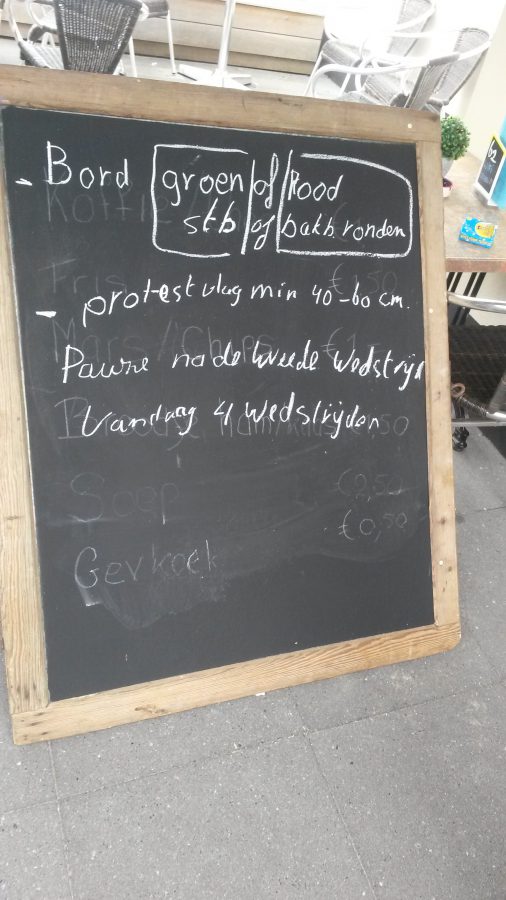 - Bord groen of Rood
stb of bakb ronden
Koffie
- protest vlag min 40-60 cm.
€1,50
Mars / Chips €1,-
Pauze na de tweede Wedstrijd
Vandaag 4 Wedstrijden
Soep €2,50
€0,50
Gevkoek